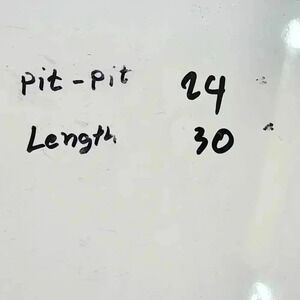 Pit-Pit 24
Length 30